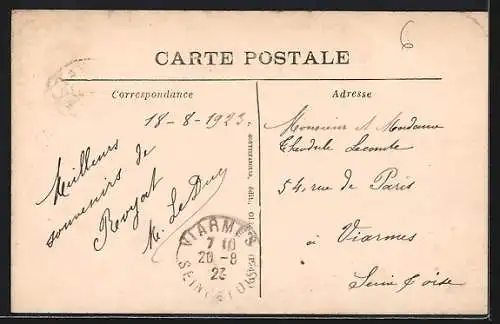 6
CARTE POSTALE
Correspondance
Adresse
18-8-1923.
Meilleurs
souvenirs de
Royat
M. Le Duc
Monsieur et Madame
Théodule Lecomte
54, rue de Paris
à Viarmes
Seine & Oise
VIARMES
7 10
20 -8
23
SEINE